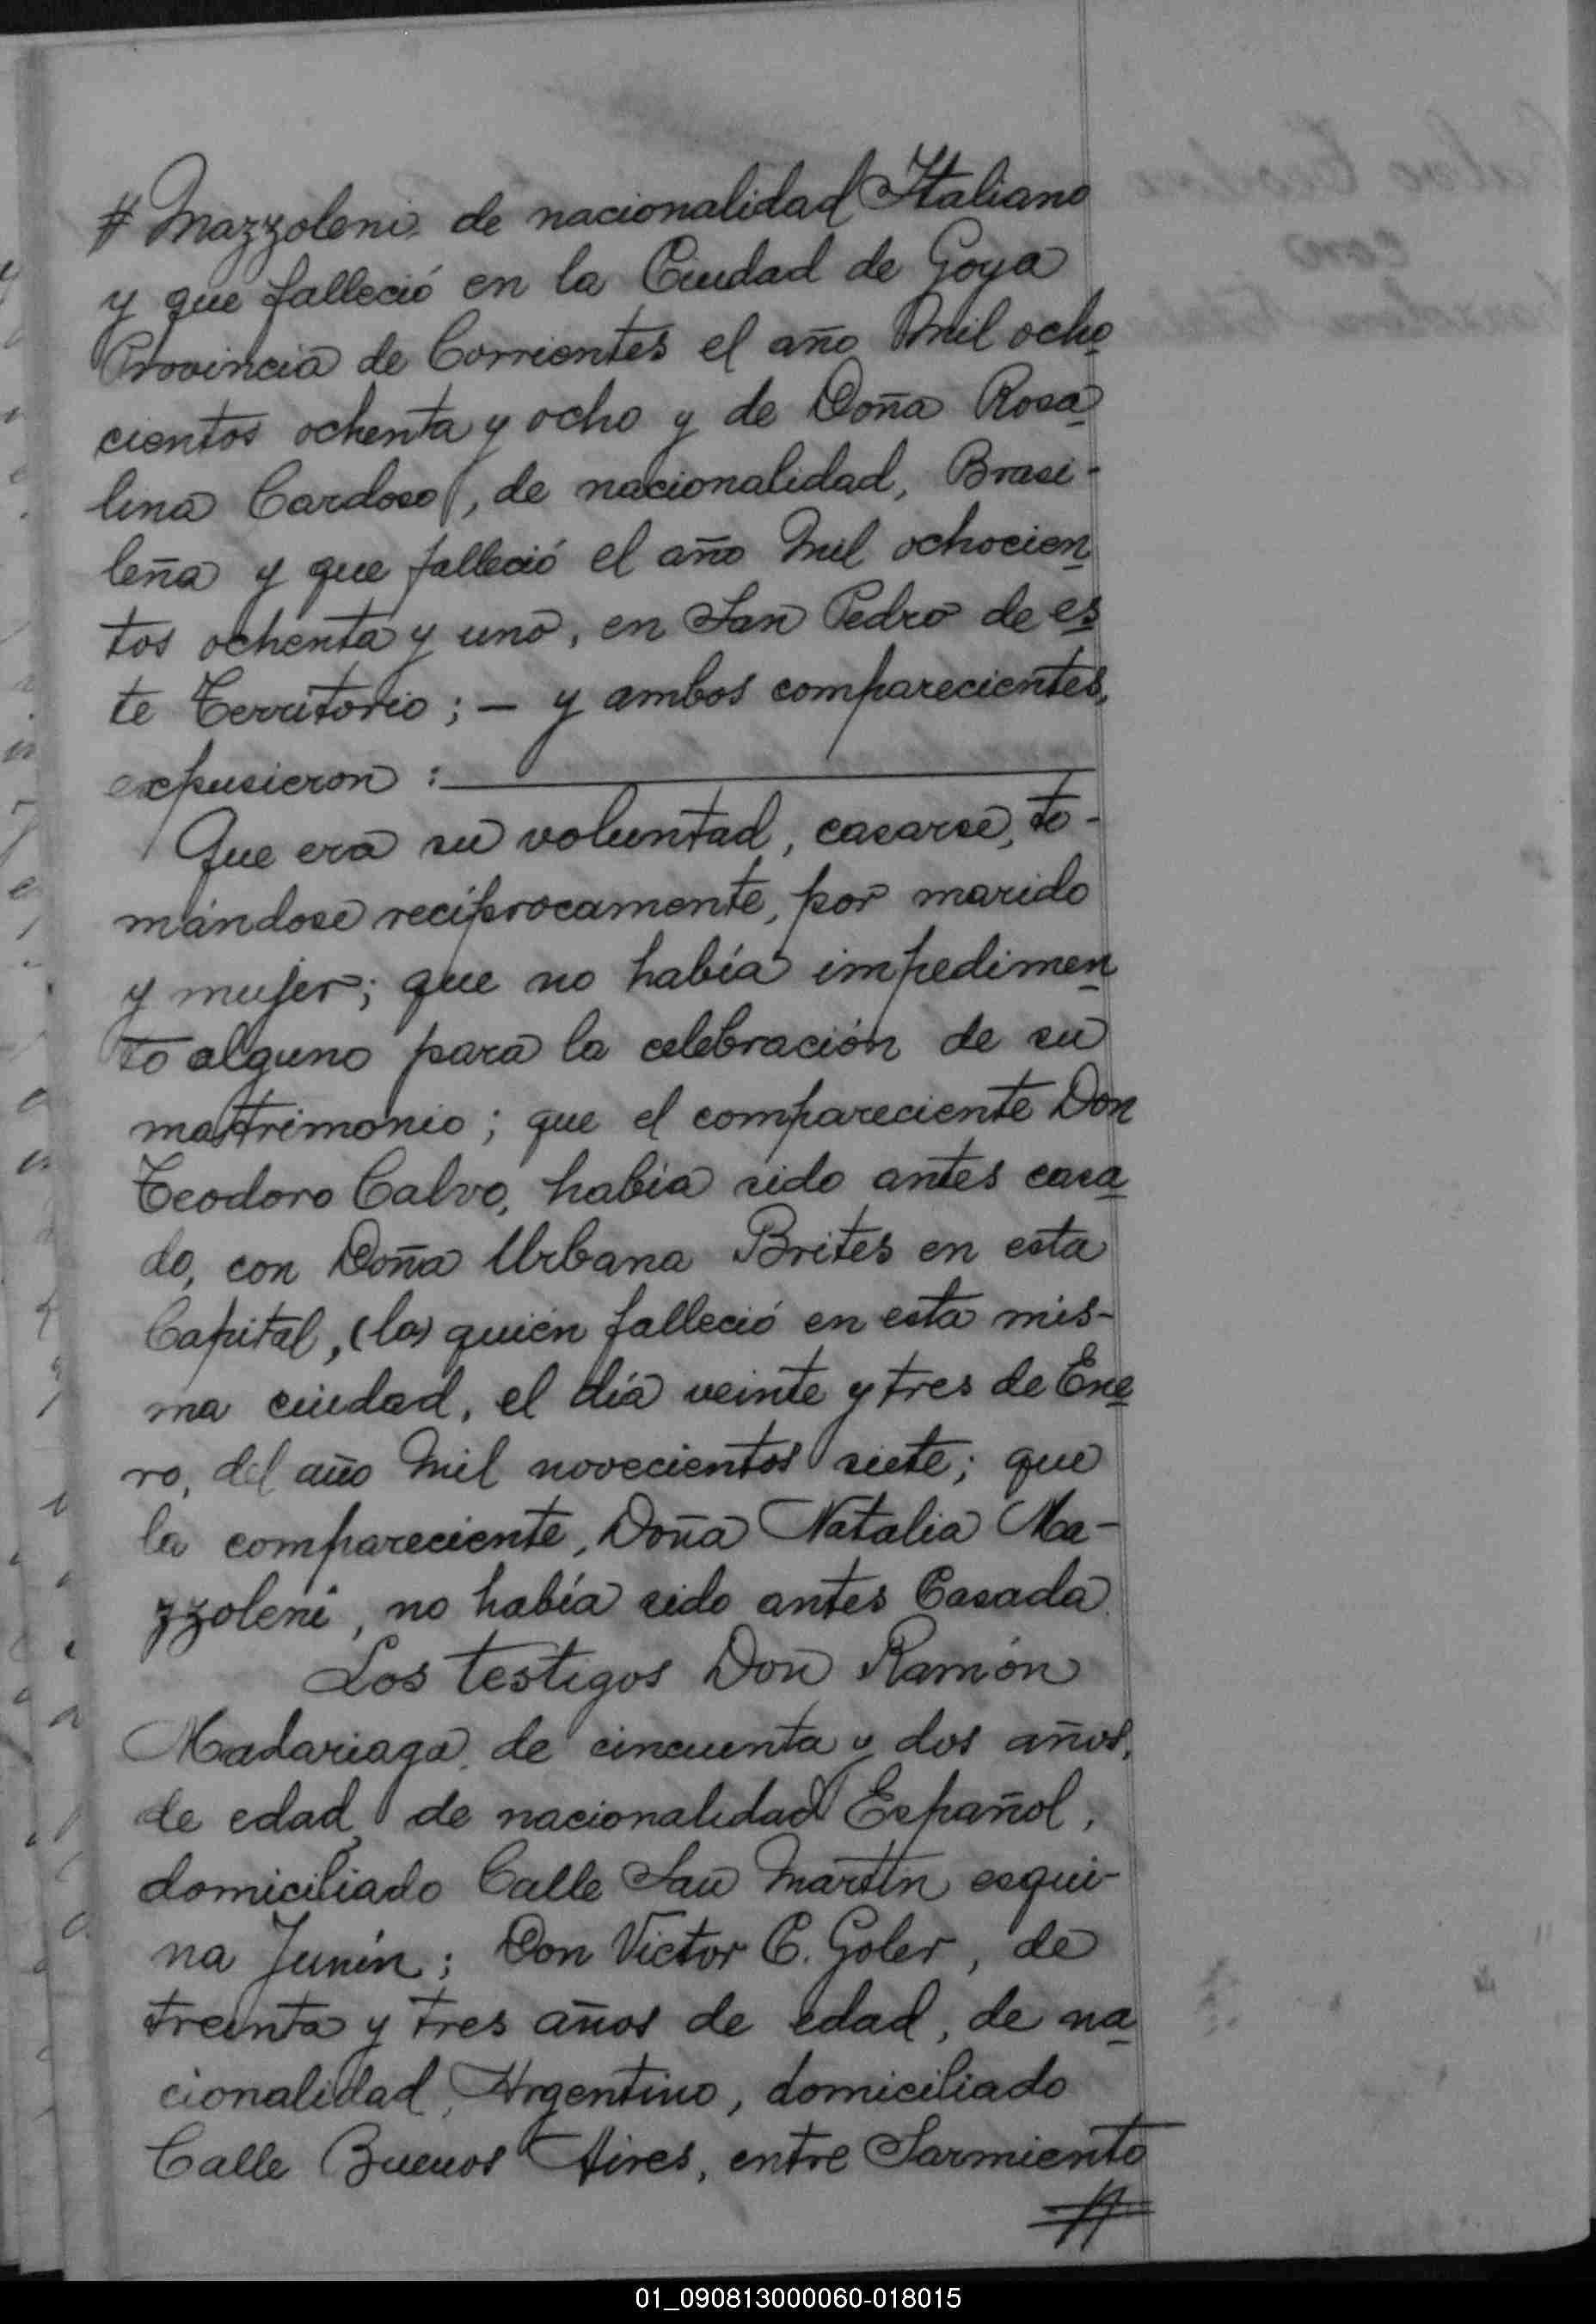 # Mazzoleni, de nacionalidad Italiano
y que falleció en la Ciudad de Goya
Provincia de Corrientes el año Mil ocho
cientos ochenta y ocho y de Doña Rosa
lina Cardoso, de nacionalidad, Brasi-
leña y que falleció el año Mil ochocien
tos ochenta y uno, en San Pedro de es
te Territorio; — y ambos comparecientes,
expusieron :
Que era su voluntad, casarse, to-
mándose recíprocamente, por marido
y mujer; que no había impedimen
to alguno para la celebración de su
matrimonio; que el compareciente Don
Teodoro Calvo, había sido antes casa
do, con Doña Urbana Brites en esta
Capital, (la) quién falleció en esta mis-
ma ciudad, el día veinte y tres de Ene
ro, del año Mil novecientos siete; que
la compareciente, Doña Natalia Ma-
zzoleni, no había sido antes Casada.
Los testigos Don Ramón
Madariaga, de cincuenta y dos años,
de edad, de nacionalidad Español,
domiciliado Calle San Martín esqui-
na Junín; Don Victor C. Goler, de
treinta y tres años de edad, de na
cionalidad, Argentino, domiciliado
Calle Buenos Aires, entre Sarmiento
#
01_090813000060-018015